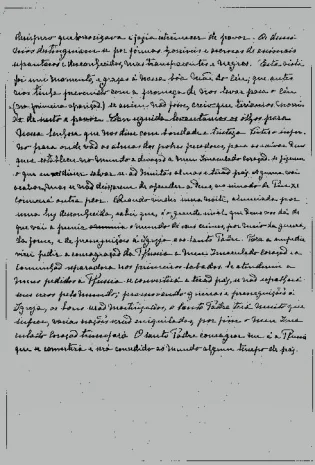 que horrorizava e fazia estremecer de pavor. Os demo-
nios distinguiam-se por formas horriveis e ascrosas de animais
espantosos e desconhecidos, mas transparentes e negros. Esta vista
foi um momento, e graças à nossa bôa Mãe do Céu, que antes
nos tinha prevenido com a promeça de nos levar para o Céu
(na primeira aparição) se assim não fosse, creio que teríamos morri-
do de susto e pavor. Em seguida, levantámos os olhos para
Nossa Senhora que nos disse com bondade e tristeza: Vistes o infer-
no, para onde vão as almas dos pobres pecadores, para as salvar, Deus
quer establecer no mundo a devoção a meu Imaculado Coração. Se fizerem
o que eu disser salvar-se-ão muitas almas e terão paz, a guerra vai
acabar, mas se não deixarem de ofender a Deus, no reinado de Pio XI
começará outra peor. Quando virdes uma noite, alumiada por
uma luz desconhecida, sabei que é o grande sinal que Deus vos dá de
que vai a punir o mundo de seus crimes, por meio da guerra,
da fome, e de perseguições à Igreja e ao Santo Padre. Para a impedir
virei pedir a consagração da Rússia a meu Imaculado Coração e a
comunhão reparadora nos primeiros sabados. Se atenderem a
meus pedidos a Rússia se converterá e terão paz, se não espalhará
seus erros pelo mundo, promovendo guerras e perseguições à
Igreja, os bons serão martirizados, o Santo Padre terá muito que
sufrer, varias nações serão aniquiladas, por fim o meu Ima-
culado Coração triunfará. O Santo Padre consagrar-me-á a Rússia
que se converterá e será concedido ao mundo algum tempo de paz.